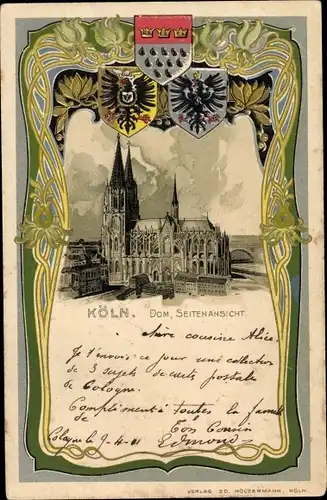 KÖLN. DOM, SEITENANSICHT.
chère cousine Alice.
Je t'envois ce jour une collection
de 3 sujets de carts postale
de Cologne.
Compliments à toutes la famille
de Ton Cousin
Cologne le 9-4-01 Edmond
VERLAG ED. HOLZERMANN, KÖLN.